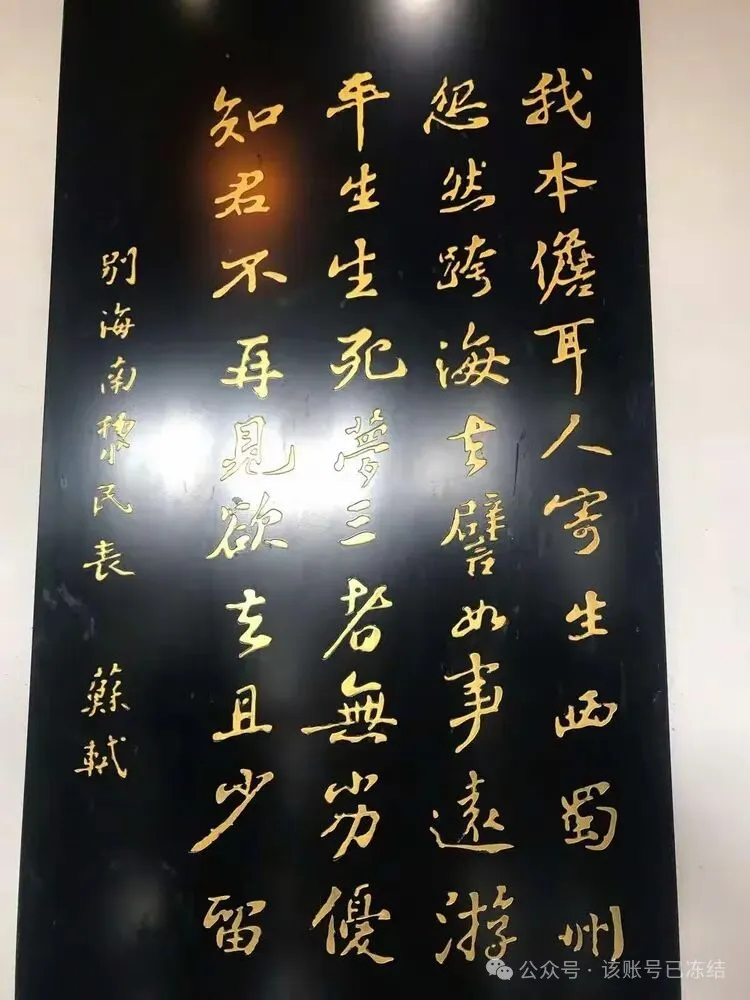 我本儋耳人寄生西蜀州
忽然跨海去譬如事遠游
平生生死夢三者無劣優
知君不再見欲去且少留
别海南黎民表 蘇軾
公众号·该账号已冻结